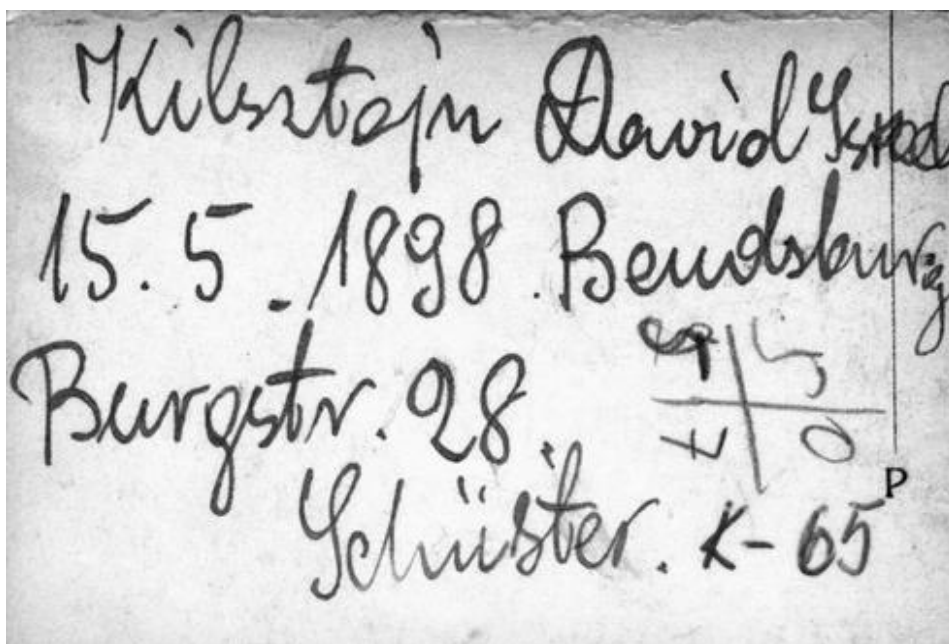 Kilsztajn David Israel
15.5.1898. Bendsburg
Burgstr. 28.
P
Schüster. K-65